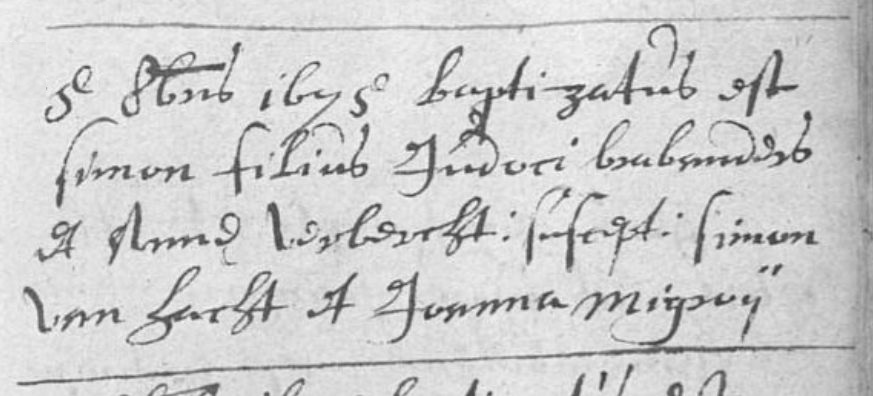 5 8bris 1675 baptizatus est
simon filius Judoci brabanders
et Annæ Verbercht : suscept : simon
van hacht et Joanna